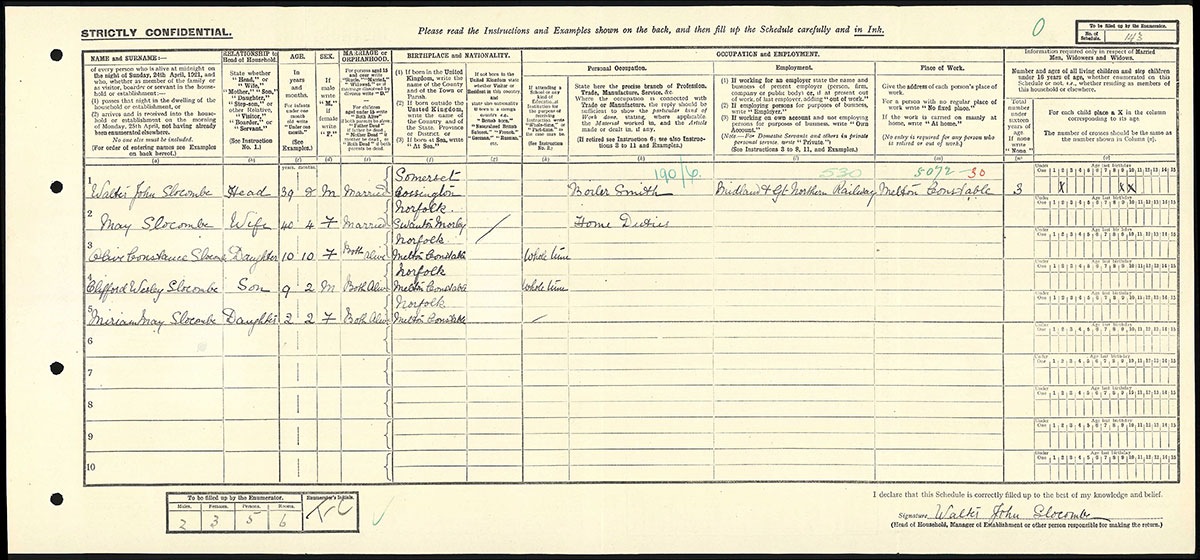 STRICTLY CONFIDENTIAL.
Please read the Instructions and Examples shown on the back, and then fill up the Schedule carefully and in Ink.
0
To be filled up by the Enumerator.
No. of Schedule. 143
NAME and SURNAME:—
of every person who is alive at midnight on the night of Sunday, 24th April, 1921, and who, whether as member of the family or as visitor, boarder or servant in the household or establishment:—
(1) passes that night in the dwelling of the household or establishment; or
(2) arrives and is received into the household or establishment on the morning of Monday, 25th April, not having already been enumerated elsewhere.
No one else must be included.
(For order of entering names see Examples on back hereof.)
(a)
RELATIONSHIP to Head of Household.
State whether "Head," or "Wife," "Mother," "Son," "Daughter," "Step-son," or other Relative, "Visitor," "Boarder," or "Servant."
(See Instruction No. 1.)
(b)
AGE.
In years and months.
(See Examples.)
(c)
SEX.
If male write "M," if female write "F."
(d)
MARRIAGE or ORPHANHOOD.
(e)
BIRTHPLACE and NATIONALITY.
(1) If born in the United Kingdom, write the name of the County and of the Town or Parish.
(2) If born outside the United Kingdom, write the name of the Country and of the State, Province or District.
(3) If born at Sea, write "At Sea."
(f)
(g)
(h)
OCCUPATION and EMPLOYMENT.
Personal Occupation.
State here the precise branch of Profession, Trade, Manufacture, Service, &c.
Where the occupation is connected with Trade or Manufacture, the reply should be sufficient to show the particular kind of Work done, stating, where applicable, the Material worked in, and the Article made or dealt in, if any.
(If retired see Instruction 6; see also Instructions 3 to 11 and Examples).
(k)
Employment.
(1) If working for an employer state the name and business of present employer (person, firm, company or public body) or, if at present out of work, of last employer, adding "out of work."
(2) If employing persons for purposes of business, write "Employer."
(3) If working on own account and not employing persons for purposes of business, write "Own Account."
(Note — For Domestic Servants and others in private personal service, write "Private")
(See Instructions 3 to 8, 11, and Examples.)
(l)
Place of Work.
Give the address of each person's place of work.
For a person with no regular place of work write "No fixed place."
If the work is carried on mainly at home, write "At home."
(No entry is required for any person who is retired or out of work.)
(m)
Information required only in respect of Married Men, Widowers and Widows.
Number and ages of all living children and step children under 16 years of age, whether enumerated on this Schedule or not, i.e., whether residing as members of this household or elsewhere.
Total number under sixteen years of age
If none write "None"
(n)
For each child place a X in the column corresponding to its age
The number of crosses should be the same as the number shown in Column (n).
(o)
190/6. 530 5072 -30
1 Walter John Slocombe Head 39 8 M Married Somerset Cossington Boiler Smith Midland & Gt Northern Railway Melton Constable 3 X X X
2 May Slocombe Wife 40 4 F Married Norfolk Swanton Morley Home Duties
3 Olive Constance Slocombe Daughter 10 10 F Both Alive Norfolk Melton Constable Whole time
4 Clifford Wesley Slocombe Son 9 2 M Both Alive Norfolk Melton Constable Whole time
5 Miriam May Slocombe Daughter 2 2 F Both Alive Norfolk Melton Constable
6
7
8
9
10
To be filled up by the Enumerator.
Males. Females. Persons. Rooms.
2 3 5 6
Enumerator's Initials.
I declare that this Schedule is correctly filled up to the best of my knowledge and belief.
Signature Walter John Slocombe
(Head of Household, Manager of Establishment or other person responsible for making the return.)